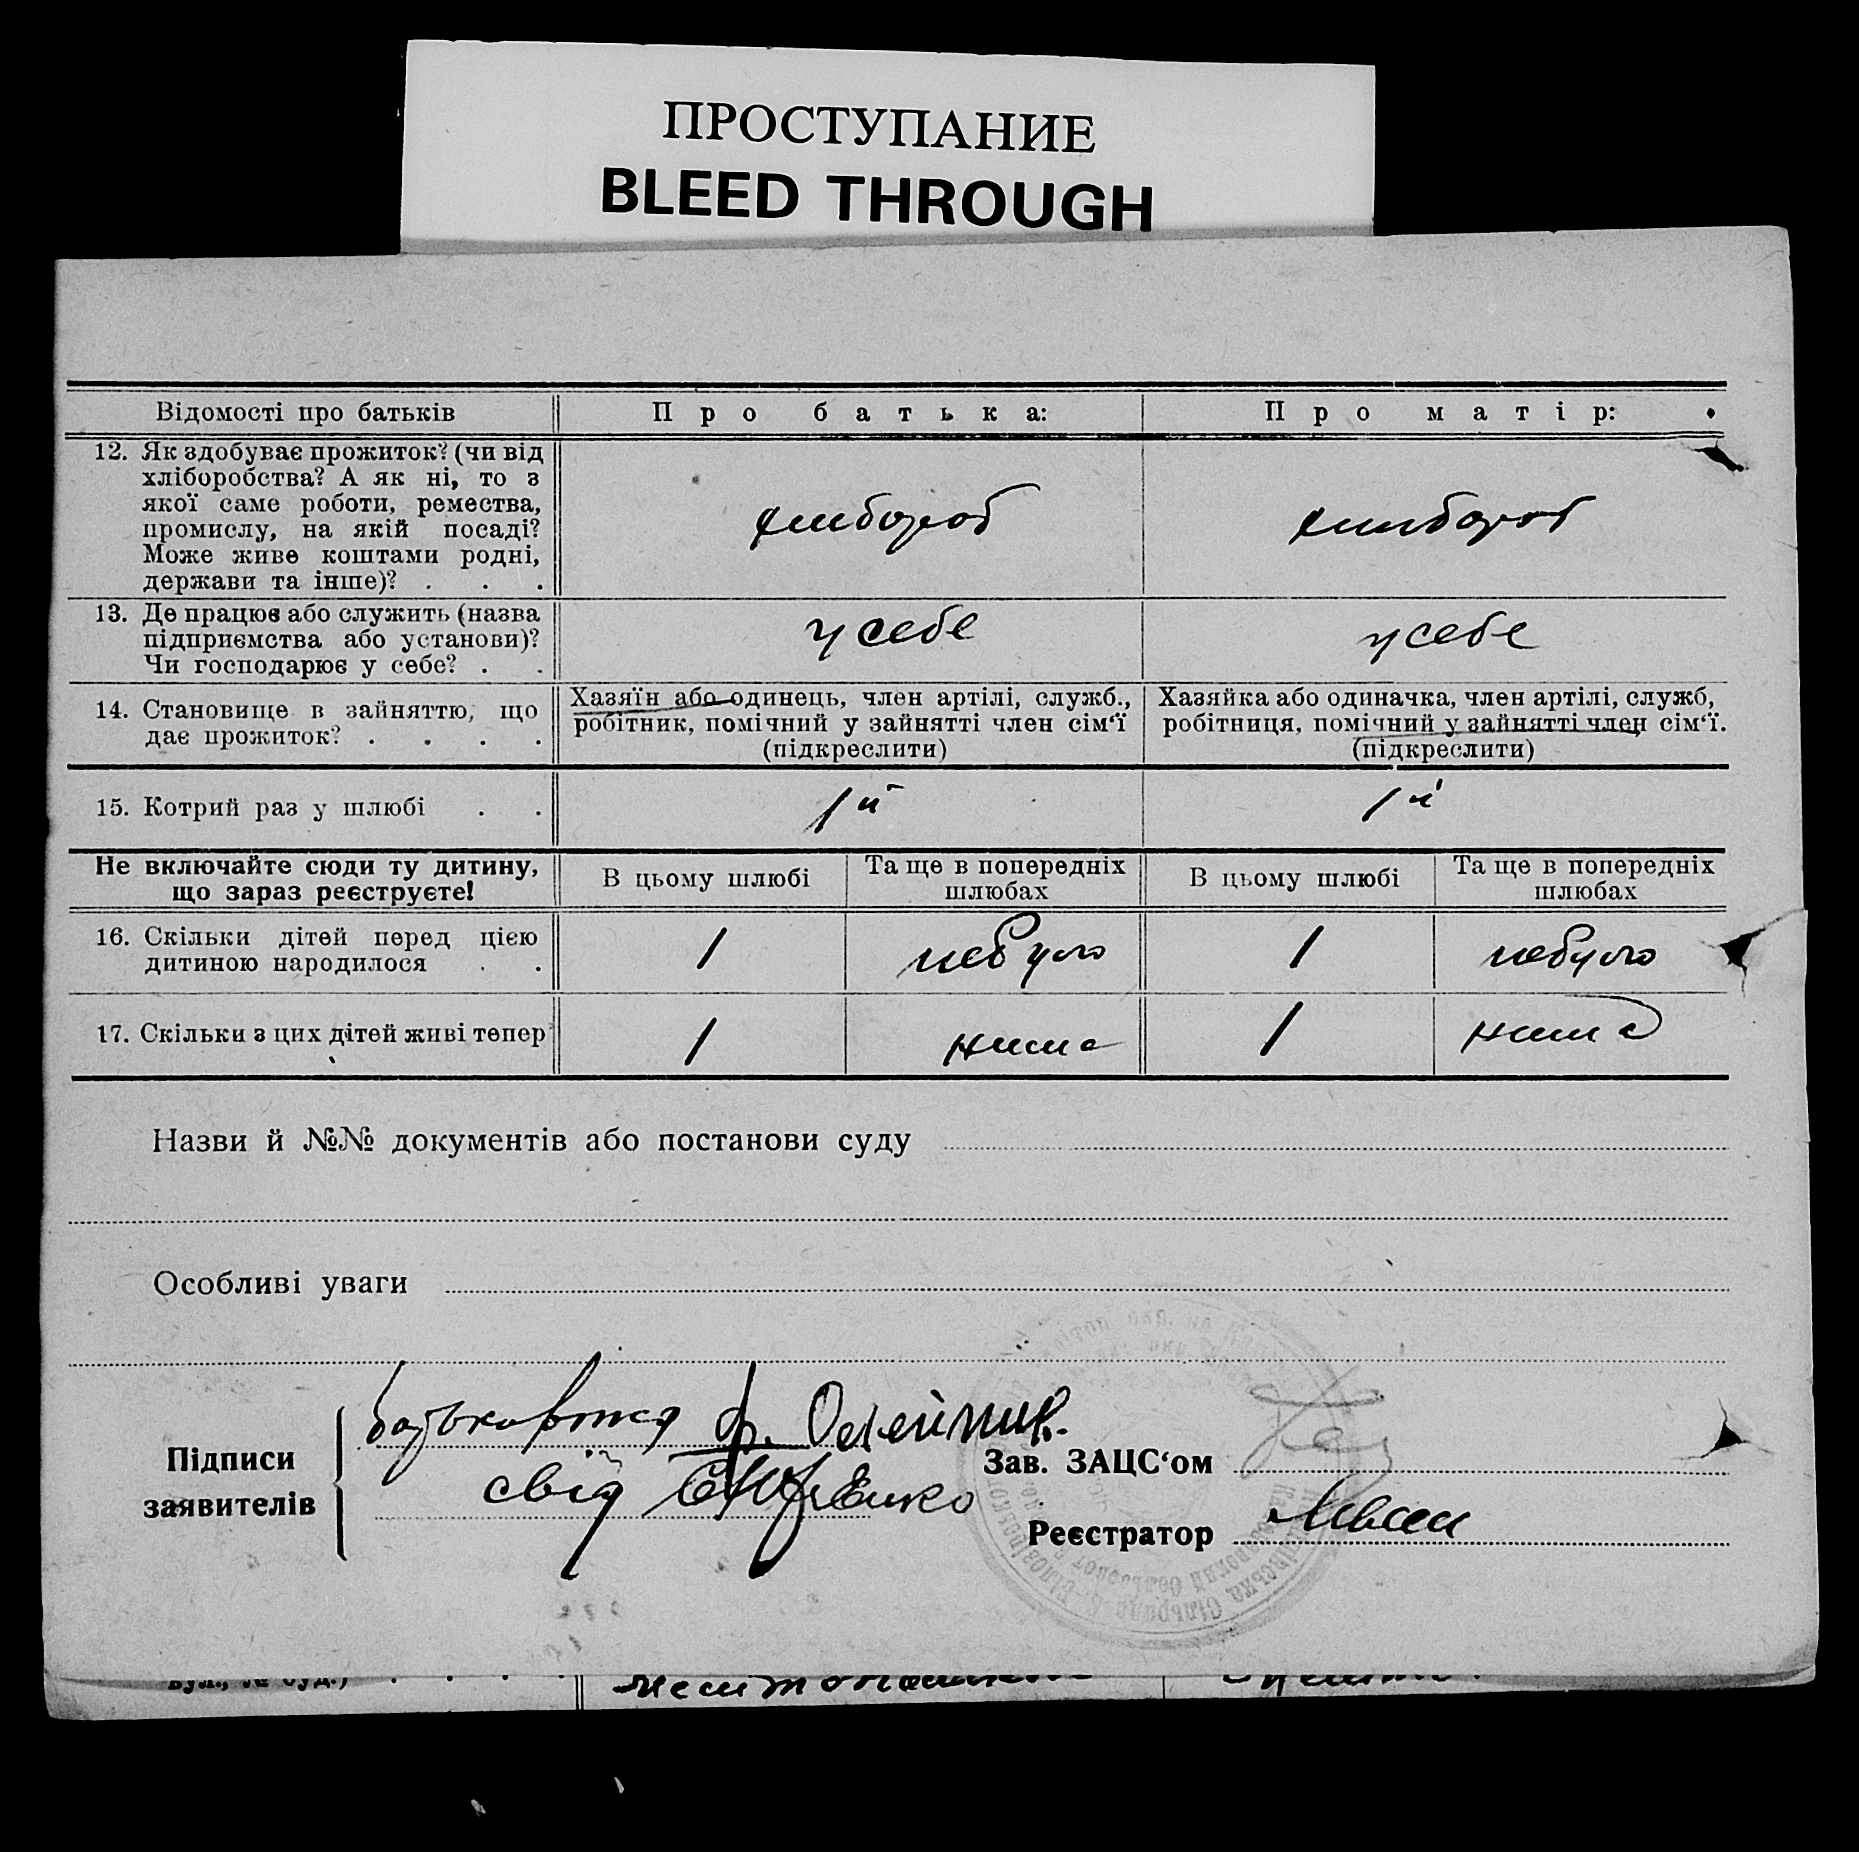 ПРОСТУПАНИЕ
BLEED THROUGH
Відомості про батьків
Про батька:
Про матір:
12. Як здобуває прожиток? (чи від
хліборобства? А як ні, то з
якої саме роботи, ремества,
промислу, на якій посаді?
Може живе коштами родні,
держави та інше)? . . .
хлібороб
хлібороб
13. Де працює або служить (назва
підприємства або установи)?
Чи господарює у себе? . .
у себе
у себе
14. Становище в зайняттю, що
дає прожиток? . . . .
Хазяїн або одинець, член артілі, служб.,
робітник, помічний у зайнятті член сім‘ї
(підкреслити)
Хазяйка або одиначка, член артілі, служб,
робітниця, помічний у зайнятті член сім‘ї.
(підкреслити)
15. Котрий раз у шлюбі . .
1й
1й
Не включайте сюди ту дитину,
що зараз реєструєте!
В цьому шлюбі
Та ще в попередніх
шлюбах
В цьому шлюбі
Та ще в попередніх
шлюбах
16. Скільки дітей перед цією
дитиною народилося . .
1
небуло
1
небуло
17. Скільки з цих дітей живі тепер
1
нима
1
нима
Назви й №№ документів або постанови суду
Особливі уваги
Підписи
заявителів
Зав. ЗАЦС‘ом
Реєстратор
свід
вул., № буд.) . . . .